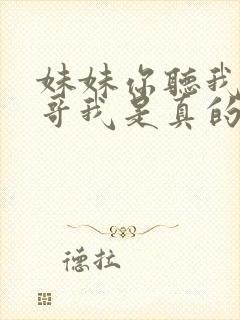 妹妹你聽我
哥我是真的
德拉